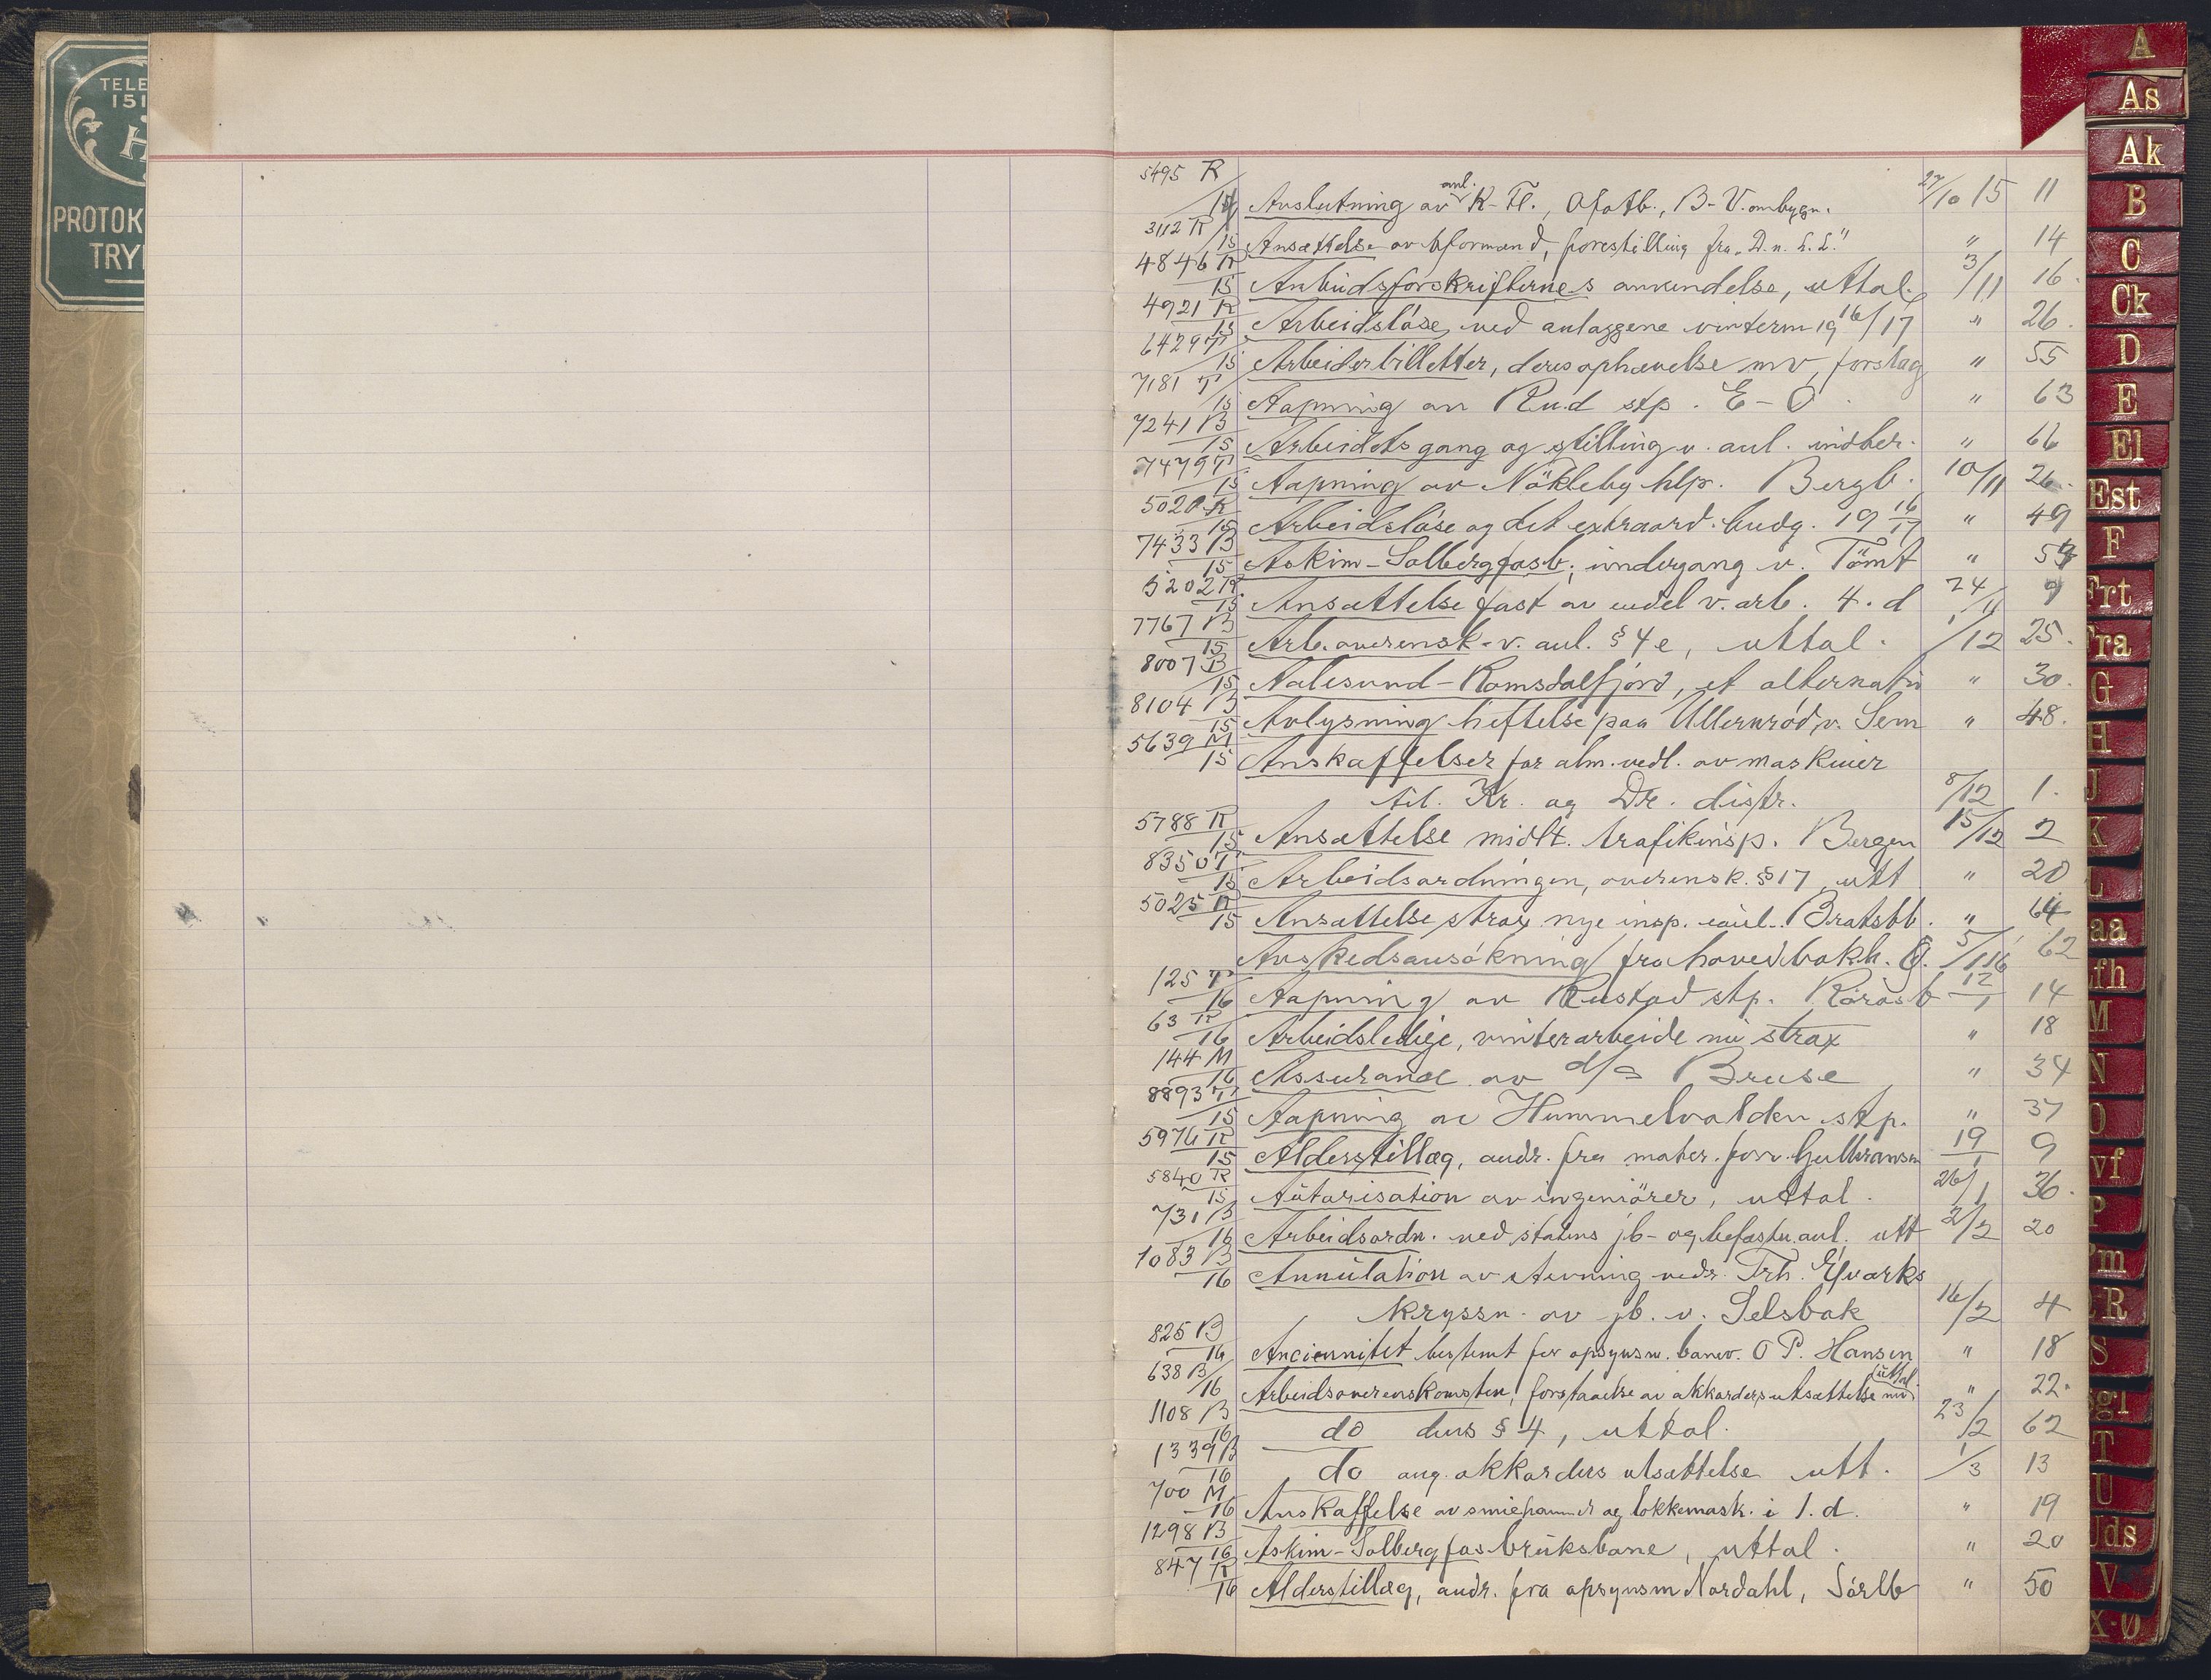 TELE
151
H
PROTOK
TRY
5495 R/15 Avslutning av anl. K-Fl., Ofotb., B-V. ombygn. 27/10 15 11
3112 R/15 Ansættelse av bformand, forestilling fra "D. n. L. L." " 14
4846 R/15 Anbudsforskrifternes anvendelse, uttal. 3/11 16.
4921 R/15 Arbeidsløse, ved anlæggene vintern 19 16/17 " 26.
6429 T/15 Arbeiderbilletter, deres ophævelse mv, forslag " 55
7181 T/15 Aapning av Rud stp. E-O. " 63
7241 B/15 Arbeidets gang og stilling v. anl. indber. " 66
7479 T/15 Aapning av Nökleby hlp. Bergb. 10/11 26.
5020 R/15 Arbeidsløse og det extraord. budg. 19 16/17 " 49
7433 B/15 Askim-Solbergfosb; undergang v. Tömt "
5202 R/15 Ansættelse fast av endel v. arb. 4. d 24/11 9
7767 B/15 Arb. overensk. v. anl. § 4 e, uttal. 1/12 25.
8007 B/15 Aalesund-Romsdalfjord, et alternativ " 30.
8104 B/15 Avlysning heftelse paa Ullernrød v. Sem " 48.
5639 M/15 Anskaffelser for alm. vedl. av maskiner
til Kr. og Dr. distr. 8/12 1.
5788 R/15 Ansættelse midlt. trafikinsp. Bergen 15/12 2
8350 T/15 Arbeidsordningen, overensk. § 17, utt " 20
5025 R/15 Ansættelse strax nye insp. Bratsbb. " 64
Avskedsansøkning fra hovedbokh. O. 5/1 16 62
125 T/16 Aapning av Rustad stp. Rörosb 12/1 14
63 R/16 Arbeidsledige, vinterarbeide nu strax " 18
144 M/16 Assurance av d/s Bruse " 34
8893 T/15 Aapning av Hummelvolden stp. " 37
5976 R/15 Alderstillæg, andr. fra mater. forv. Gulbransen 19/1 9
5840 R/15 Autorisation av ingeniörer, uttal. 26/1 36.
731 B/16 Arbeidsordn. ved statens jb- og befæstn. anl. utt 2/2 20
1083 B/16 Annulation av stevning vedr. Trh. E/varks
kryssn. av jb. v. Selsbak 16/2 4
825 B/16 Anciennitet bestemt for opsynsm. banev. O P. Hansen " 18
638 B/16 Arbeidsoverenskomsten, forstaaelse av akkorders utsættelse mv uttal. " 22.
1108 B/16 do dens § 4, uttal. 23/2 62
1339 B/16 do ang. akkorders utsættelse utt. 1/3 13
700 M/16 Anskaffelse av smiehammer og lokkemask. i 1. d. " 19
1298 B/16 Askim-Solbergfos bruksbane, uttal. " 20
847 R/16 Alderstillæg, andr. fra opsynsm Nordahl, Sørlb " 50
A
As
Ak
B
C
Ck
D
E
El
Est
F
Frt
Fra
G
H
J
K
L
aa
fh
M
N
O
vf
P
m
R
S
gl
T
U
Uds
V
X-Ø